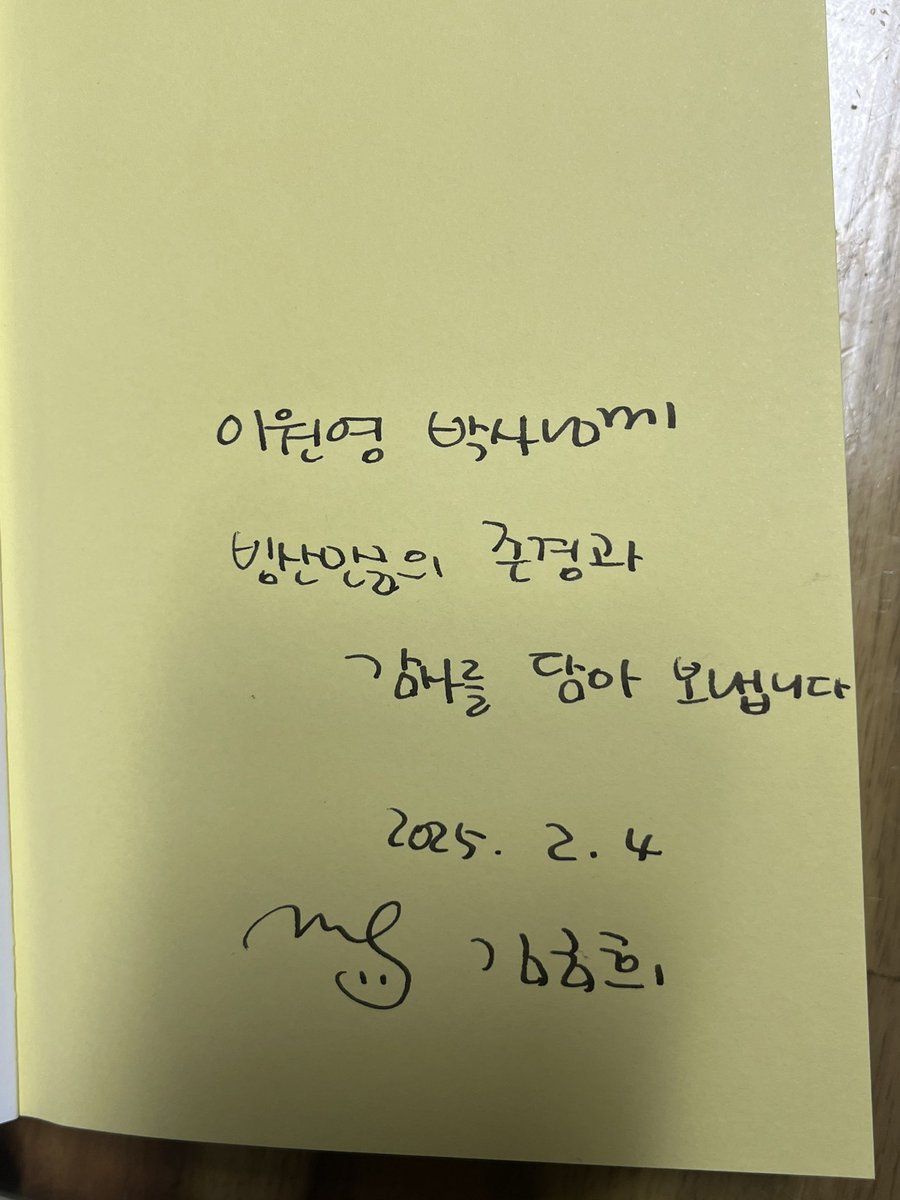 이원영 박사님께
빙산만큼의 존경과
감사를 담아 보냅니다
2025. 2. 4
김금희